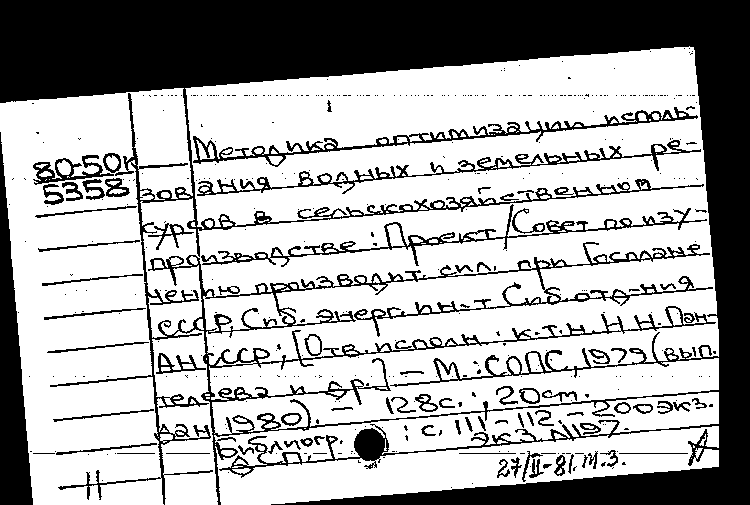 Методика оптимизации исполь-
80-50к
5358
зования водных и земельных ре-
сурсов в сельскохозяйственном
производстве : Проект / Совет по изу-
чению производит. сил. при Госплане
СССР, Сиб. энерг. ин-т Сиб. отд-ния
АН СССР ; [Отв. исполн. : к.т.н. Н.Н. Пан-
телеева и др.] - М. : СОПС, 1979 (вып.
дан 1980). - 128 с. ; 20 ст.
Библиогр. : с. 111-112. - 200 экз.
ДСП. экз. №197.
27/II-81. М.З.